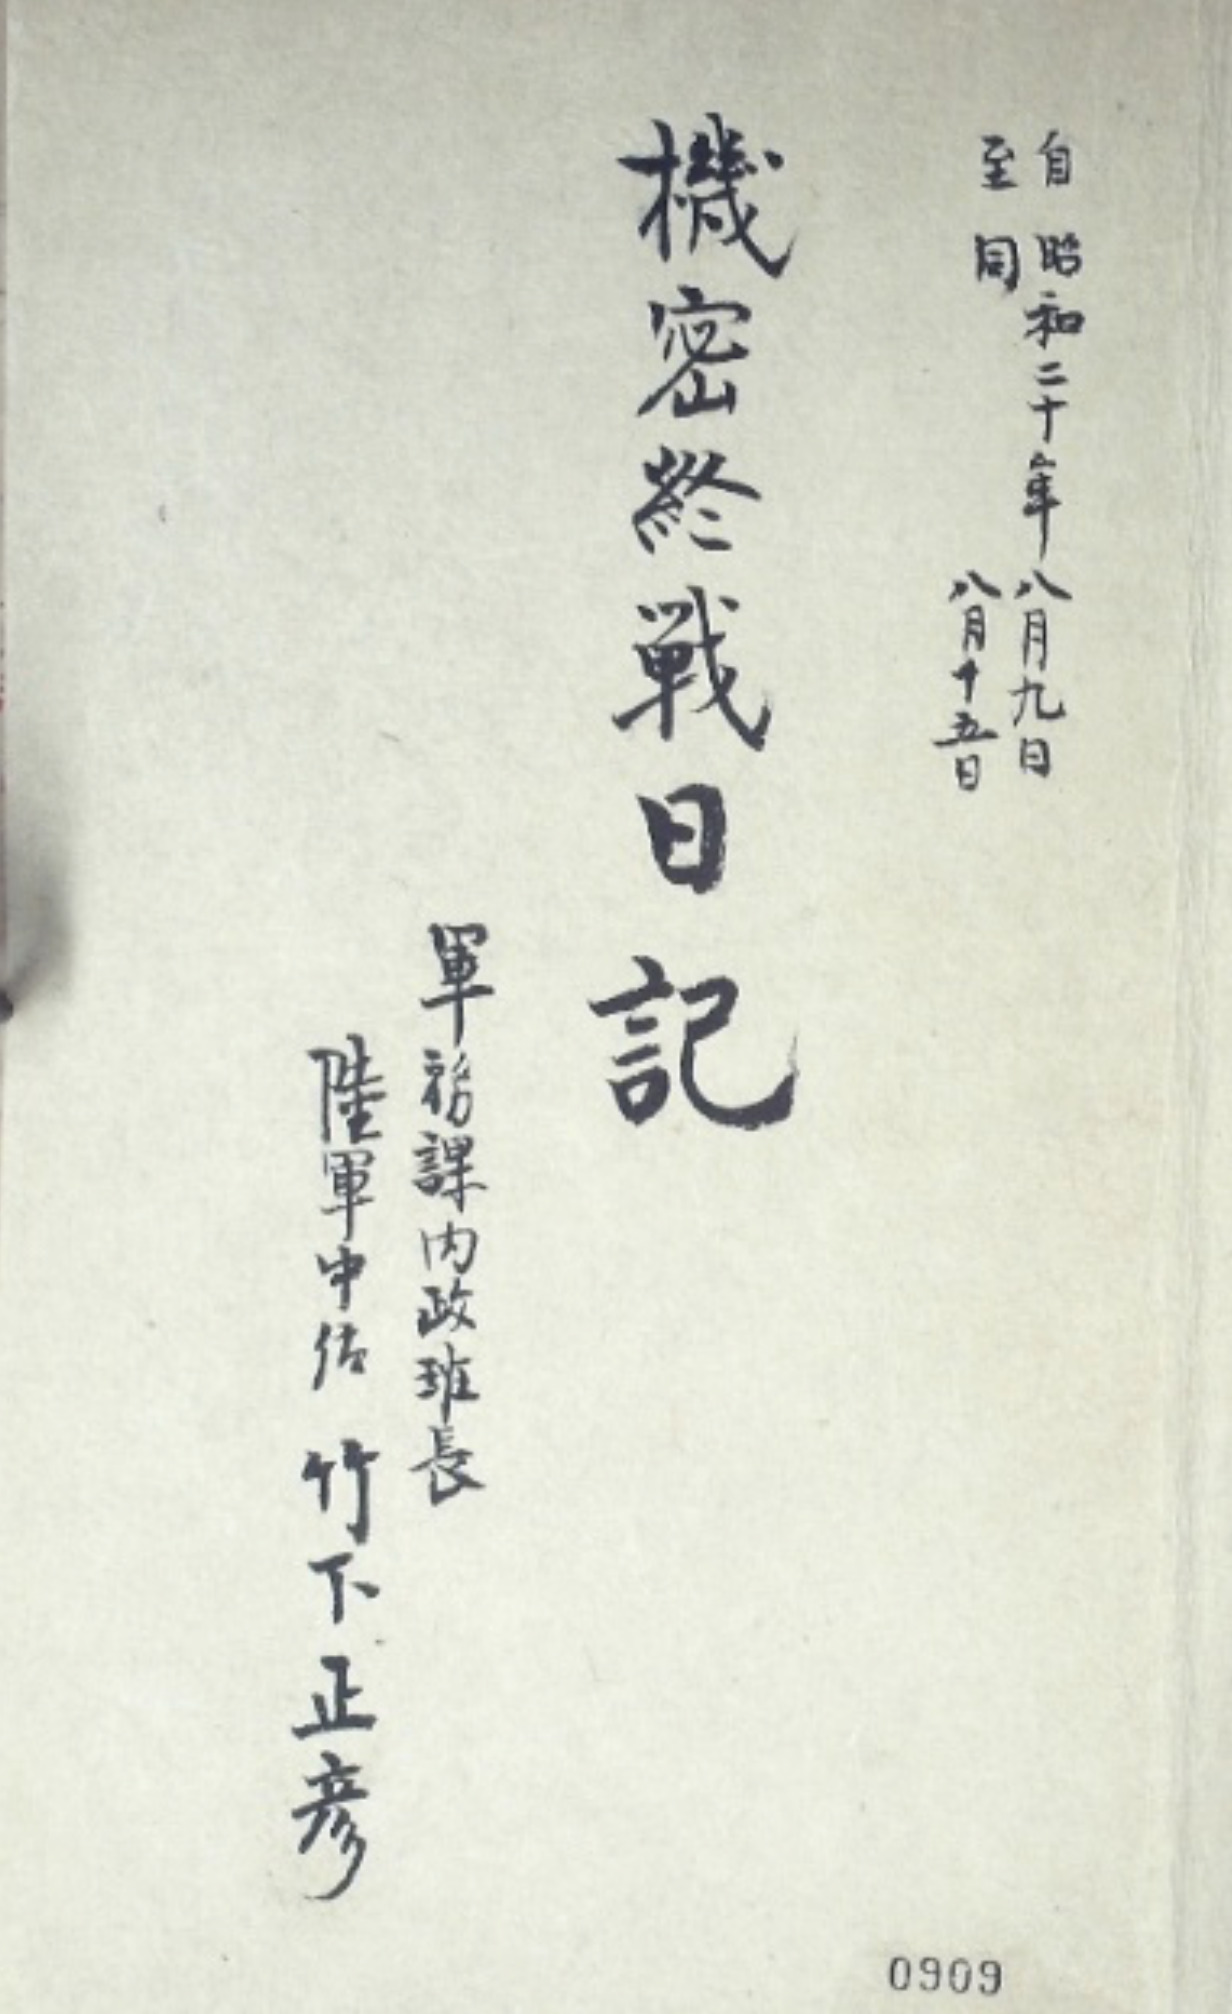 自 昭和二十年八月九日
至 同 八月十五日
機密終戦日記
軍務課内政班長
陸軍中佐 竹下正彦
0909